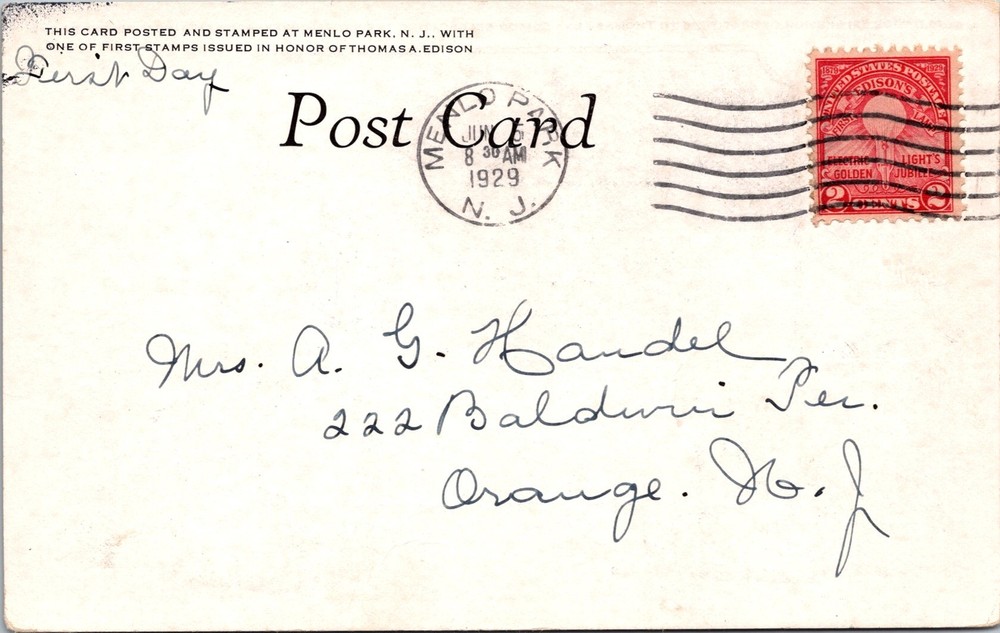 THIS CARD POSTED AND STAMPED AT MENLO PARK, N. J., WITH
ONE OF FIRST STAMPS ISSUED IN HONOR OF THOMAS A. EDISON
First Day
Post Card
MENLO PARK
JUN 5
8 30 AM
1929
N. J.
1879 1929
UNITED STATES POSTAGE
EDISON'S
FIRST LAMP
ELECTRIC LIGHT'S
GOLDEN JUBILEE
2 CENTS 2
Mrs. A. G. Handel
222 Baldwin Ter.
Orange. N. J